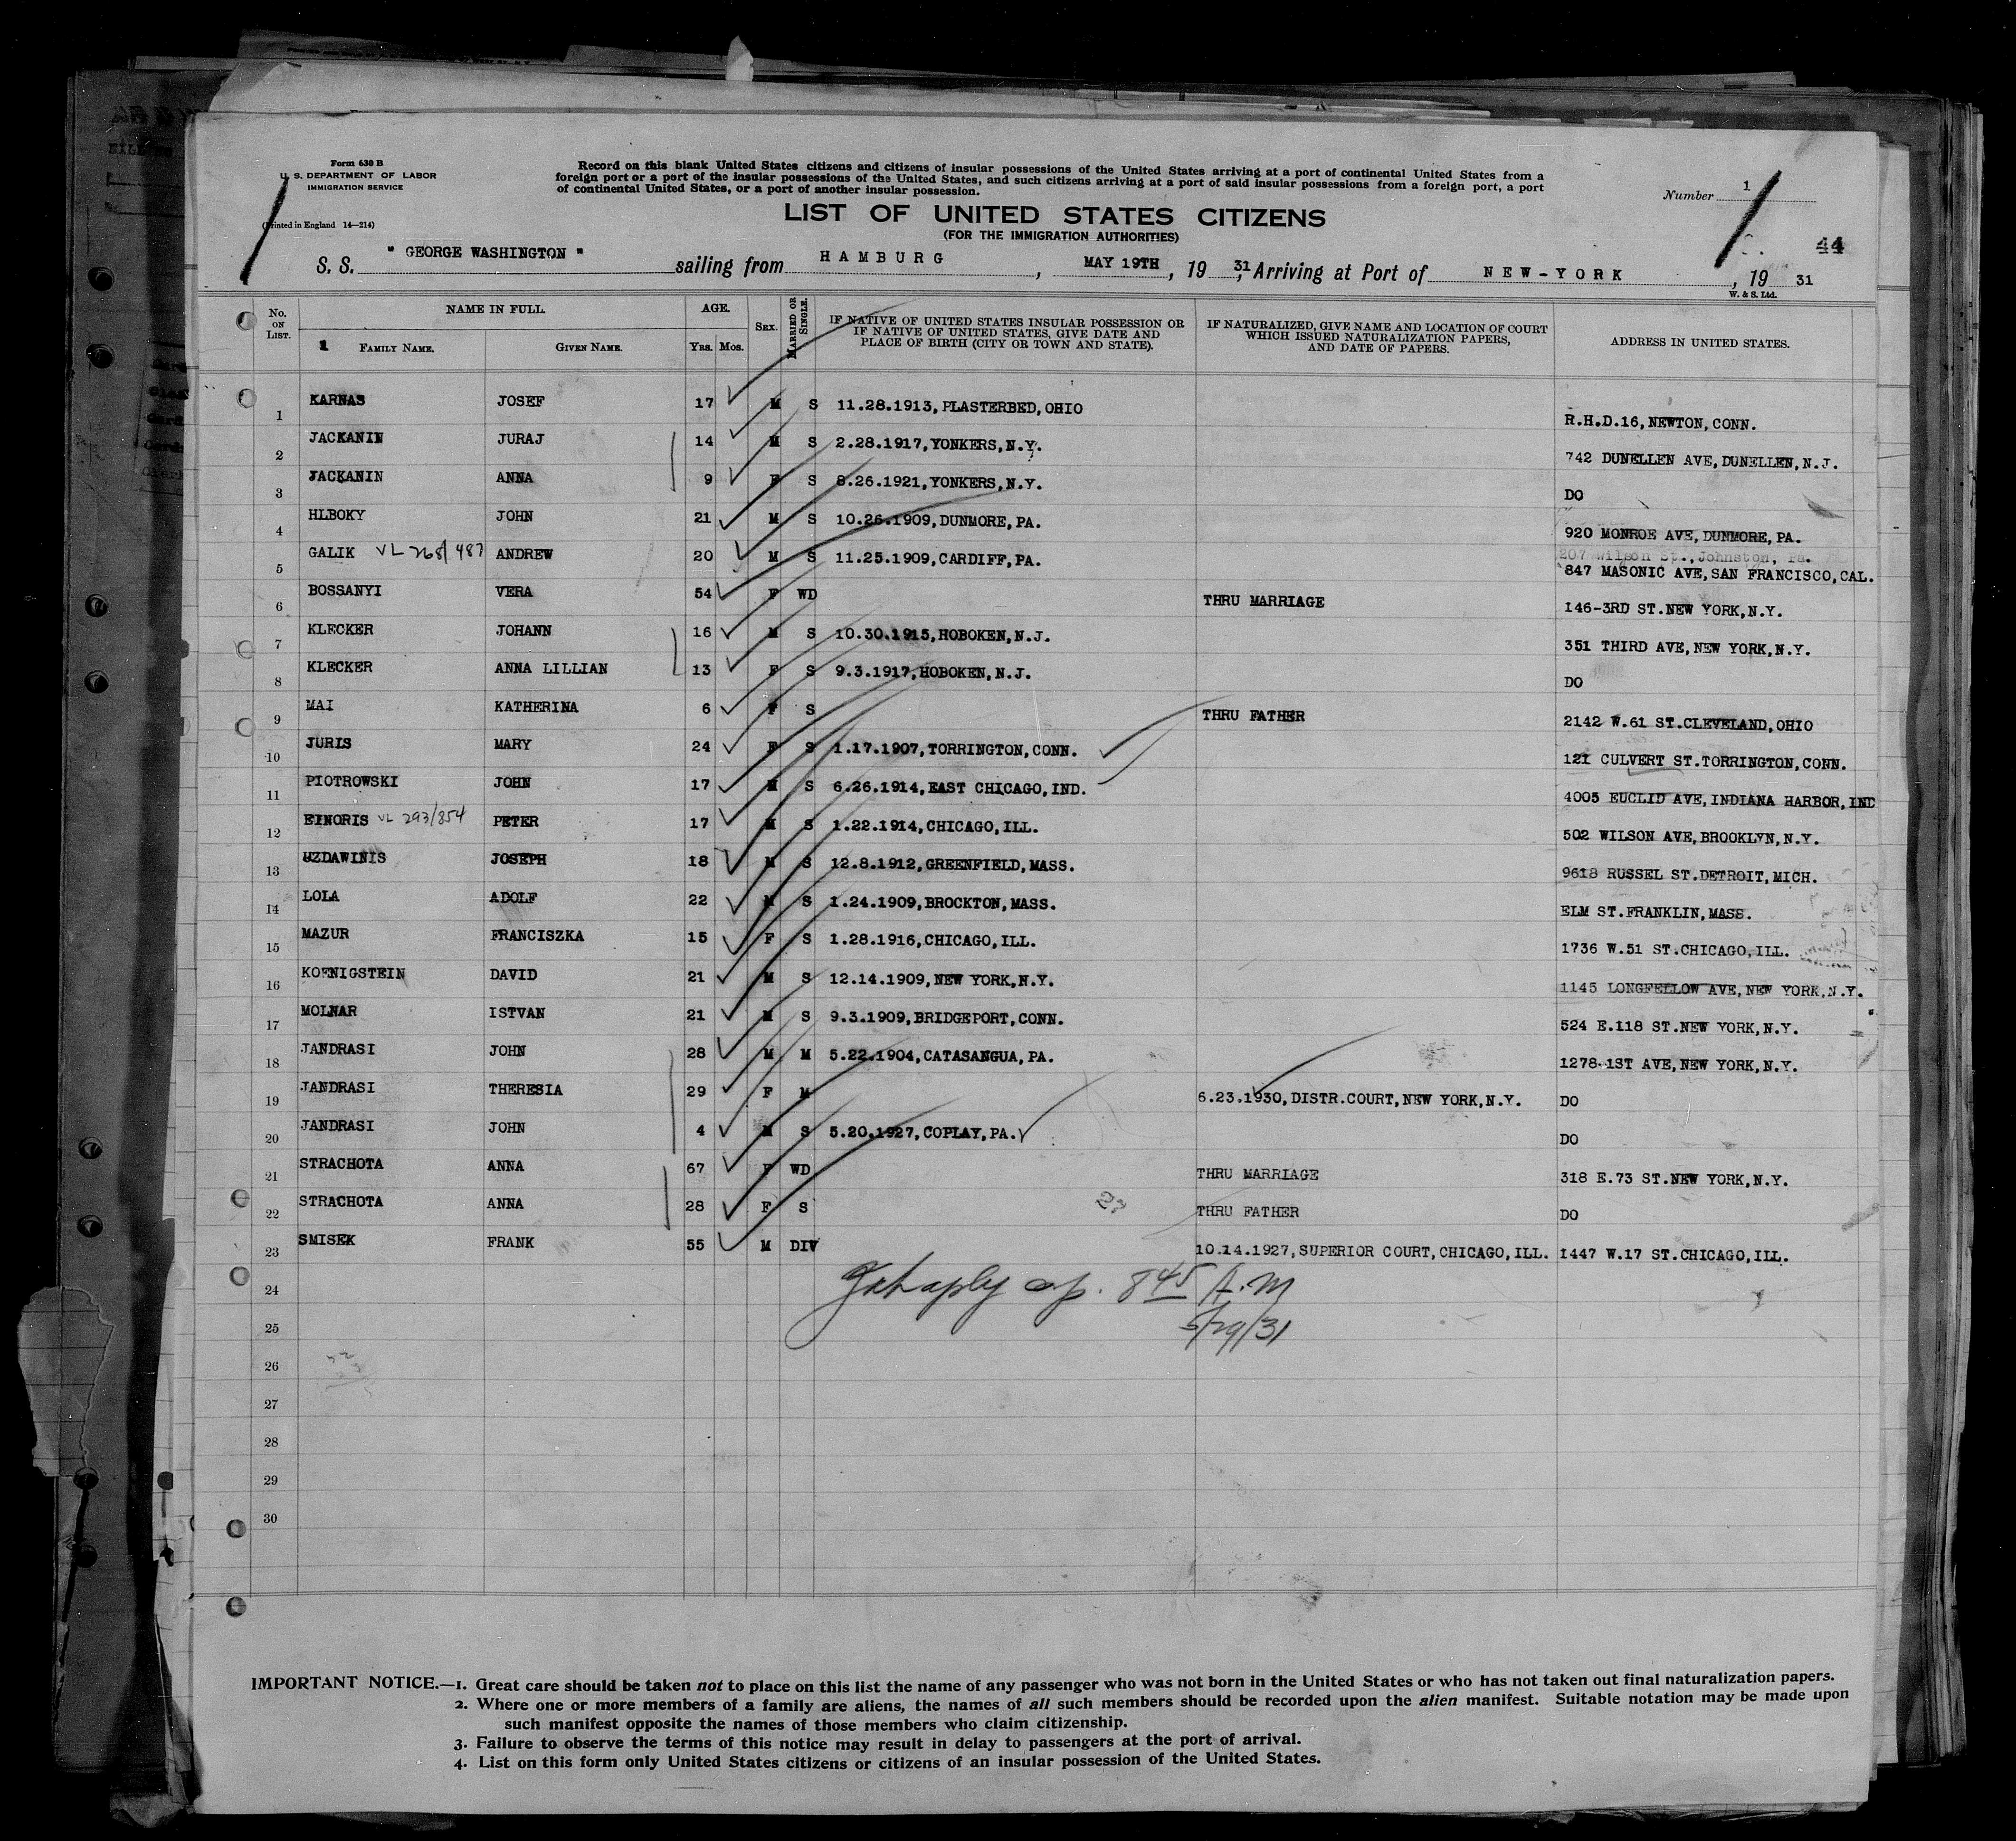 Form 630 B
U. S. DEPARTMENT OF LABOR
IMMIGRATION SERVICE
(Printed in England 14—214)
Record on this blank United States citizens and citizens of insular possessions of the United States arriving at a port of continental United States from a
foreign port or a port of the insular possessions of the United States, and such citizens arriving at a port of said insular possessions from a foreign port, a port
of continental United States, or a port of another insular possession.
Number 1
LIST OF UNITED STATES CITIZENS
(FOR THE IMMIGRATION AUTHORITIES)
44
S. S. " GEORGE WASHINGTON " sailing from HAMBURG, MAY 19TH, 19 31, Arriving at Port of NEW-YORK, 19 31
W. & S. Ltd.
No. ON LIST.
NAME IN FULL.
1 FAMILY NAME.
GIVEN NAME.
AGE.
Yrs. Mos.
SEX.
MARRIED OR SINGLE.
IF NATIVE OF UNITED STATES INSULAR POSSESSION OR
IF NATIVE OF UNITED STATES, GIVE DATE AND
PLACE OF BIRTH (CITY OR TOWN AND STATE).
IF NATURALIZED, GIVE NAME AND LOCATION OF COURT
WHICH ISSUED NATURALIZATION PAPERS,
AND DATE OF PAPERS.
ADDRESS IN UNITED STATES.
1 KARNAS JOSEF 17 M S 11.28.1913, PLASTERBED, OHIO R.H.D.16, NEWTON, CONN.
2 JACKANIN JURAJ 14 M S 2.28.1917, YONKERS, N.Y. 742 DUNELLEN AVE, DUNELLEN, N.J.
3 JACKANIN ANNA 9 F S 8.26.1921, YONKERS, N.Y. DO
4 HLBOKY JOHN 21 M S 10.26.1909, DUNMORE, PA. 920 MONROE AVE, DUNMORE, PA.
207 Wilson St., Johnston, Pa.
5 GALIK VL 268/487 ANDREW 20 M S 11.25.1909, CARDIFF, PA. 847 MASONIC AVE, SAN FRANCISCO, CAL.
6 BOSSANYI VERA 54 F WD THRU MARRIAGE 146-3RD ST. NEW YORK, N.Y.
7 KLECKER JOHANN 16 M S 10.30.1915, HOBOKEN, N.J. 351 THIRD AVE, NEW YORK, N.Y.
8 KLECKER ANNA LILLIAN 13 F S 9.3.1917, HOBOKEN, N.J. DO
9 MAI KATHERINA 6 F S THRU FATHER 2142 W.61 ST. CLEVELAND, OHIO
10 JURIS MARY 24 F S 1.17.1907, TORRINGTON, CONN. 121 CULVERT ST. TORRINGTON, CONN.
11 PIOTROWSKI JOHN 17 M S 6.26.1914, EAST CHICAGO, IND. 4005 EUCLID AVE, INDIANA HARBOR, IND
12 EINORIS VL 293/854 PETER 17 M S 1.22.1914, CHICAGO, ILL. 502 WILSON AVE, BROOKLYN, N.Y.
13 UZDAWINIS JOSEPH 18 M S 12.8.1912, GREENFIELD, MASS. 9618 RUSSEL ST. DETROIT, MICH.
14 LOLA ADOLF 22 M S 1.24.1909, BROCKTON, MASS. ELM ST. FRANKLIN, MASS.
15 MAZUR FRANCISZKA 15 F S 1.28.1916, CHICAGO, ILL. 1736 W.51 ST. CHICAGO, ILL.
16 KOENIGSTEIN DAVID 21 M S 12.14.1909, NEW YORK, N.Y. 1145 LONGFELLOW AVE, NEW YORK, N.Y.
17 MOLNAR ISTVAN 21 M S 9.3.1909, BRIDGEPORT, CONN. 524 E.118 ST. NEW YORK, N.Y.
18 JANDRASI JOHN 28 M M 5.22.1904, CATASANGUA, PA. 1278-1ST AVE, NEW YORK, N.Y.
19 JANDRASI THERESIA 29 F M 6.23.1930, DISTR. COURT, NEW YORK, N.Y. DO
20 JANDRASI JOHN 4 M S 5.20.1927, COPLAY, PA. DO
21 STRACHOTA ANNA 67 F WD THRU MARRIAGE 318 E.73 ST. NEW YORK, N.Y.
22 STRACHOTA ANNA 28 F S THRU FATHER DO
23 SMISEK FRANK 55 M DIV 10.14.1927, SUPERIOR COURT, CHICAGO, ILL. 1447 W.17 ST. CHICAGO, ILL.
24 8 45 A.M
25 5/29/31
26
27
28
29
30
IMPORTANT NOTICE.—1. Great care should be taken not to place on this list the name of any passenger who was not born in the United States or who has not taken out final naturalization papers.
2. Where one or more members of a family are aliens, the names of all such members should be recorded upon the alien manifest. Suitable notation may be made upon
such manifest opposite the names of those members who claim citizenship.
3. Failure to observe the terms of this notice may result in delay to passengers at the port of arrival.
4. List on this form only United States citizens or citizens of an insular possession of the United States.